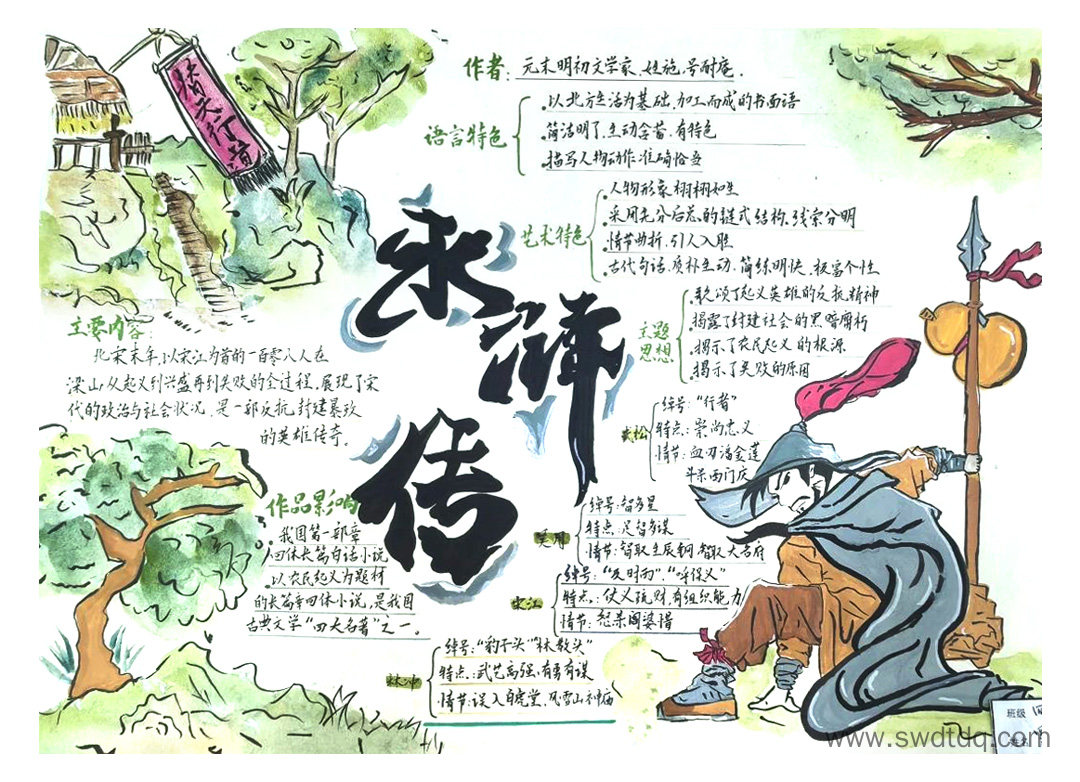 替天行道
水浒传
作者:元末明初文学家、姓施,号耐庵.
语言特色
以北方生活为基础,加工而成的书面语
简洁明了、生动含蓄,有特色
描写人物动作准确恰当
艺术特色
人物形象栩栩如生
采用先分后总的链式结构、线索分明
情节曲折,引人入胜
古代句话、质朴生动、简练明快、极富个性
主题思想
歌颂了起义英雄的反抗精神
揭露了封建社会的黑暗腐朽
揭示了农民起义的根源
揭示了失败的原因
主要内容:
北宋末年,以宋江为首的一百零八人在
梁山,从起义到兴盛再到失败的全过程,展现了宋
代的政治与社会状况,是一部反抗,封建暴政
的英雄传奇。
武松
绰号:“行者”
特点:崇尚忠义
情节:血刃潘金莲
斗杀西门庆
作品影响
我国第一部章
回体长篇白话小说
以农民起义为题材
的长篇章回体小说,是我国
古典文学“四大名著”之一。
吴用
绰号:智多星
特点:足智多谋
情节:智取生辰纲,智取大名府
宋江
绰号:“及时雨”.“呼保义”
特点:仗义疏财,有组织能力
情节:怒杀阎婆惜
林冲
绰号:“豹子头”“林教头”
特点:武艺高强,有勇有谋
情节:误入白虎堂、风雪山神庙
班级
www.swdtdq.com